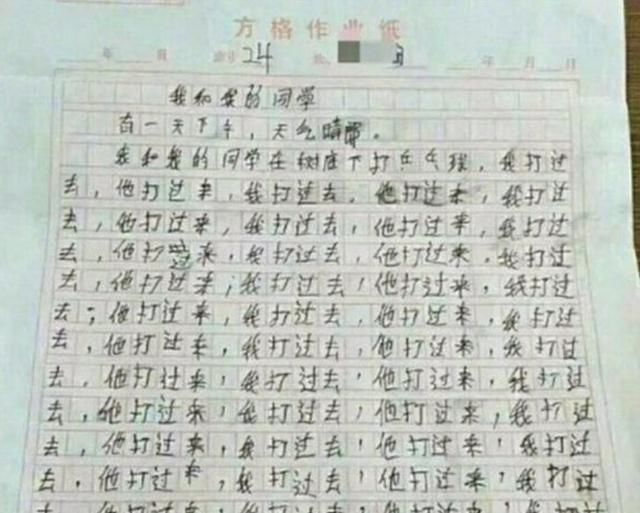 方格作业纸
年 日 24 年 月 日
我和我的同学
有一天下午，天气晴。
我和我的同学在树底下打乒乓球，我打过
去，他打过来，我打过去，他打过来，我打过
去，他打过来，我打过去，他打过来，我打过
去，他打过来，我打过去，他打过来，我打过
去，他打过来，我打过去，他打过来，我打过
去，他打过来，我打过去，他打过来，我打过
去，他打过来，我打过去，他打过来，我打过
去，他打过来，我打过去，他打过来，我打过
去，他打过来，我打过去，他打过来，我打过
去，他打过来，我打过去，他打过来，我打过
去，他打过来，我打过去，他打过来，我打过
去，他打过来，我打过去，他打过来，我打过